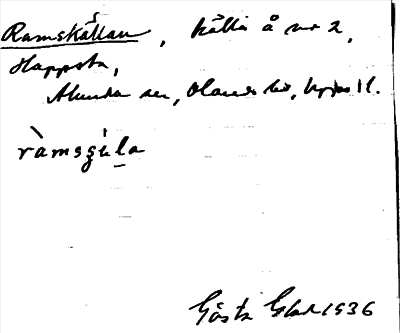 Ramskällan, källa å nr 2,
Happsta,
Alunda sn, Olands hd, Upps. l.
ràmsʂɩ́la
Gösta Eks 1936